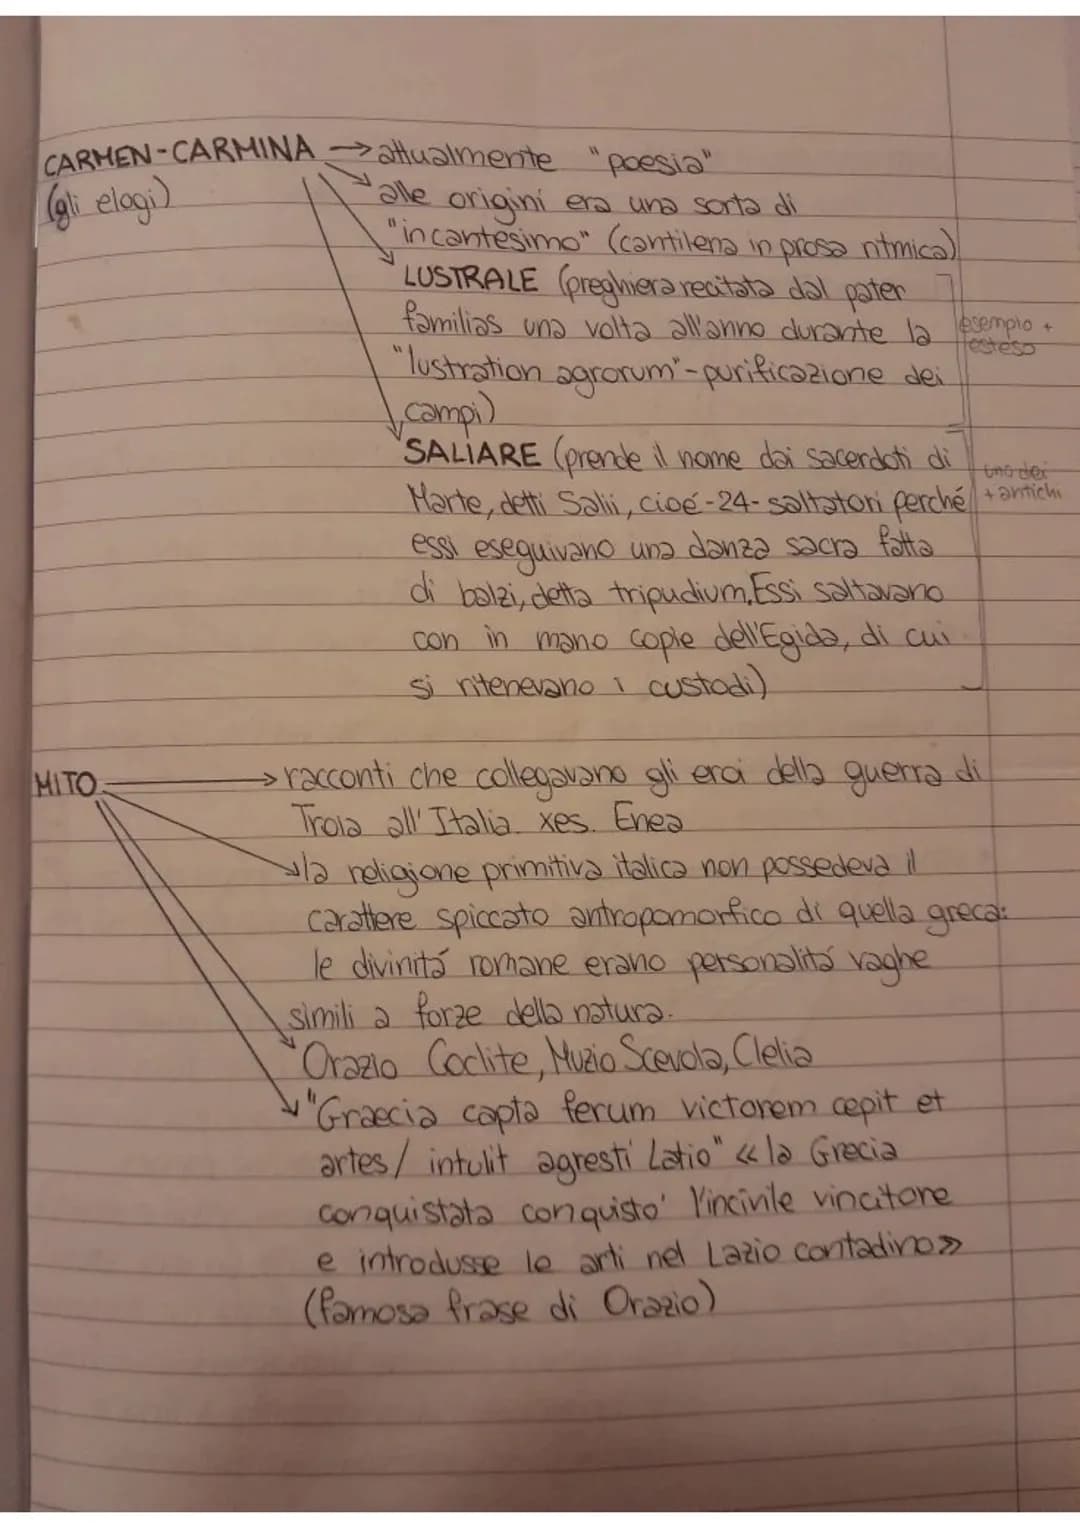 CARMEN-CARMINA → attualmente "poesia"
(gli elogi)
alle origini era una sorta di
"incantesimo" (cantilena in prosa ritmica)
LUSTRALE (preghiera recitata dal pater
familias una volta all'anno durante la
"lustration agrorum"-purificazione dei
campi)
esempio +
esteso
SALIARE (prende il nome dai sacerdoti di
Marte, detti Salii, cioé -24- saltatori perché
essi eseguivano una danza sacra fatta
di balzi, detta tripudium. Essi saltavano
con in mano copie dell'Egida, di cui
si ritenevano i custodi)
uno dei
+ antichi
MITO → racconti che collegavano gli eroi della guerra di
Troia all'Italia. xes. Enea
la religione primitiva italica non possedeva il
carattere spiccato antropomorfico di quella greca:
le divinitá romane erano personalitá vaghe
simili a forze della natura.
Orazio Coclite, Muzio Scevola, Clelia
"Graecia capta ferum victorem cepit et
artes/ intulit agresti Latio" «la Grecia
conquistata conquisto' l'incivile vincitore
e introdusse le arti nel Lazio contadino»
(famosa frase di Orazio)